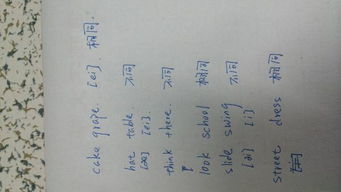 cake grape. [ei]. 相同.
hat table. 不同
[æ] [ei].
think there. 不同
look school 相同
slide swing 不同
[ai] [i]
street dress 相同